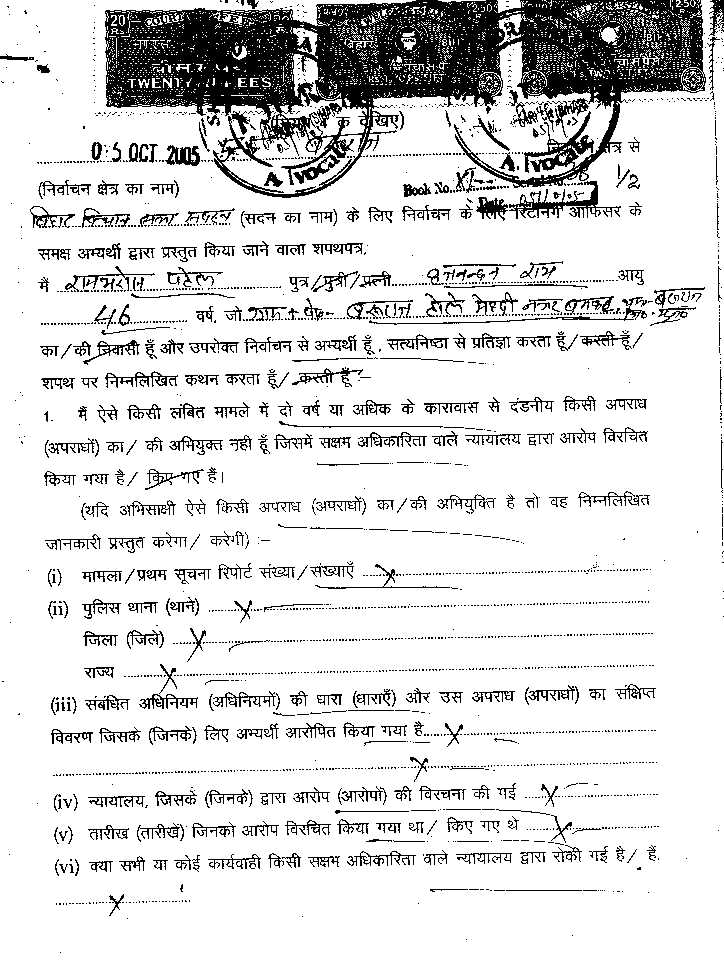 20
TWENTY RUPEES
(नियम 4 क देखिए)
05 OCT 2005 क्षेत्र से
(निर्वाचन क्षेत्र का नाम)
Book No. XI Serial No.
1/2
Date 05/10/05
बिहार विधान सभा (सदन का नाम) के लिए निर्वाचन के लिए रिटर्निंग ऑफिसर के
समक्ष अभ्यर्थी द्वारा प्रस्तुत किया जाने वाला शपथपत्र,
मैं पटेल पुत्र/पुत्री/पत्नी राम आयु
46 वर्ष, जो
का/की निवासी हूँ और उपरोक्त निर्वाचन से अभ्यर्थी हूँ, सत्यनिष्ठा से प्रतिज्ञा करता हूँ/करती हूँ/
शपथ पर निम्नलिखित कथन करता हूँ/करती हूँ:–
1. मैं ऐसे किसी लंबित मामले में दो वर्ष या अधिक के कारावास से दंडनीय किसी अपराध
(अपराधों) का/की अभियुक्त नही हूँ जिसमें सक्षम अधिकारिता वाले न्यायालय द्वारा आरोप विरचित
किया गया है/किए गए हैं।
(यदि अभिसाक्षी ऐसे किसी अपराध (अपराधों) का/की अभियुक्ति है तो वह निम्नलिखित
जानकारी प्रस्तुत करेगा/करेगी) :–
(i) मामला/प्रथम सूचना रिपोर्ट संख्या/संख्याएँ X
(ii) पुलिस थाना (थाने) X
जिला (जिले) X
राज्य X
(iii) संबंधित अधिनियम (अधिनियमों) की धारा (धाराएँ) और उस अपराध (अपराधों) का संक्षिप्त
विवरण जिसके (जिनके) लिए अभ्यर्थी आरोपित किया गया है X
X
(iv) न्यायालय, जिसके (जिनके) द्वारा आरोप (आरोपों) की विरचना की गई X
(v) तारीख (तारीखें) जिनको आरोप विरचित किया गया था/किए गए थे X
(vi) क्या सभी या कोई कार्यवाही किसी सक्षम अधिकारिता वाले न्यायालय द्वारा रोकी गई है/हैं.
X